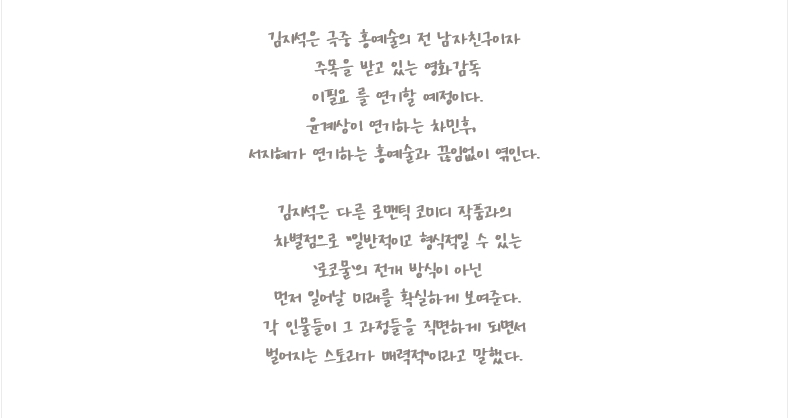 김지석은 극중 홍예술의 전 남자친구이자
주목을 받고 있는 영화감독
이필요 를 연기할 예정이다.
윤계상이 연기하는 차민후,
서지혜가 연기하는 홍예술과 끊임없이 엮인다.
김지석은 다른 로맨틱 코미디 작품과의
차별점으로 "일반적이고 형식적일 수 있는
'로코물'의 전개 방식이 아닌
먼저 일어날 미래를 확실하게 보여준다.
각 인물들이 그 과정들을 직면하게 되면서
벌어지는 스토리가 매력적"이라고 말했다.